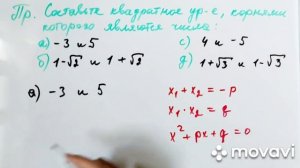 Пр. Составьте квадратное ур-е, корнями
которого являются числа:
а) -3 и 5
в) 4 и -5
б) 1-√2 и 1+√2
г) 1+√3 и 1-√3
а) -3 и 5
x₁ + x₂ = -p
x₁ · x₂ = q
x² + px + q = 0
movavi